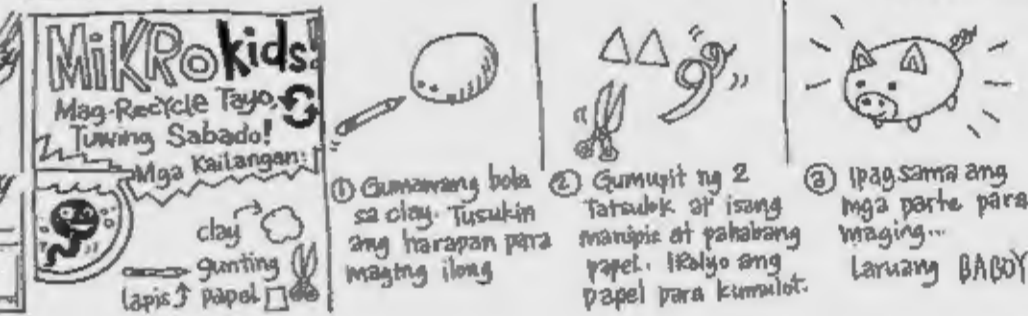 MiKRokids!
Mag-Recycle Tayo,
Tuwing Sabado!
Mga Kailangan:
clay
gunting
lapis papel
① Gumawang bola
sa clay. Tusukin
ang harapan para
maging ilong
② Gumupit ng 2
Tatsulok at isang
manipis at pahabang
papel. IRolyo ang
papel para kumulot.
③ Ipagsama ang
mga parte para
maging...
Laruang BABOY